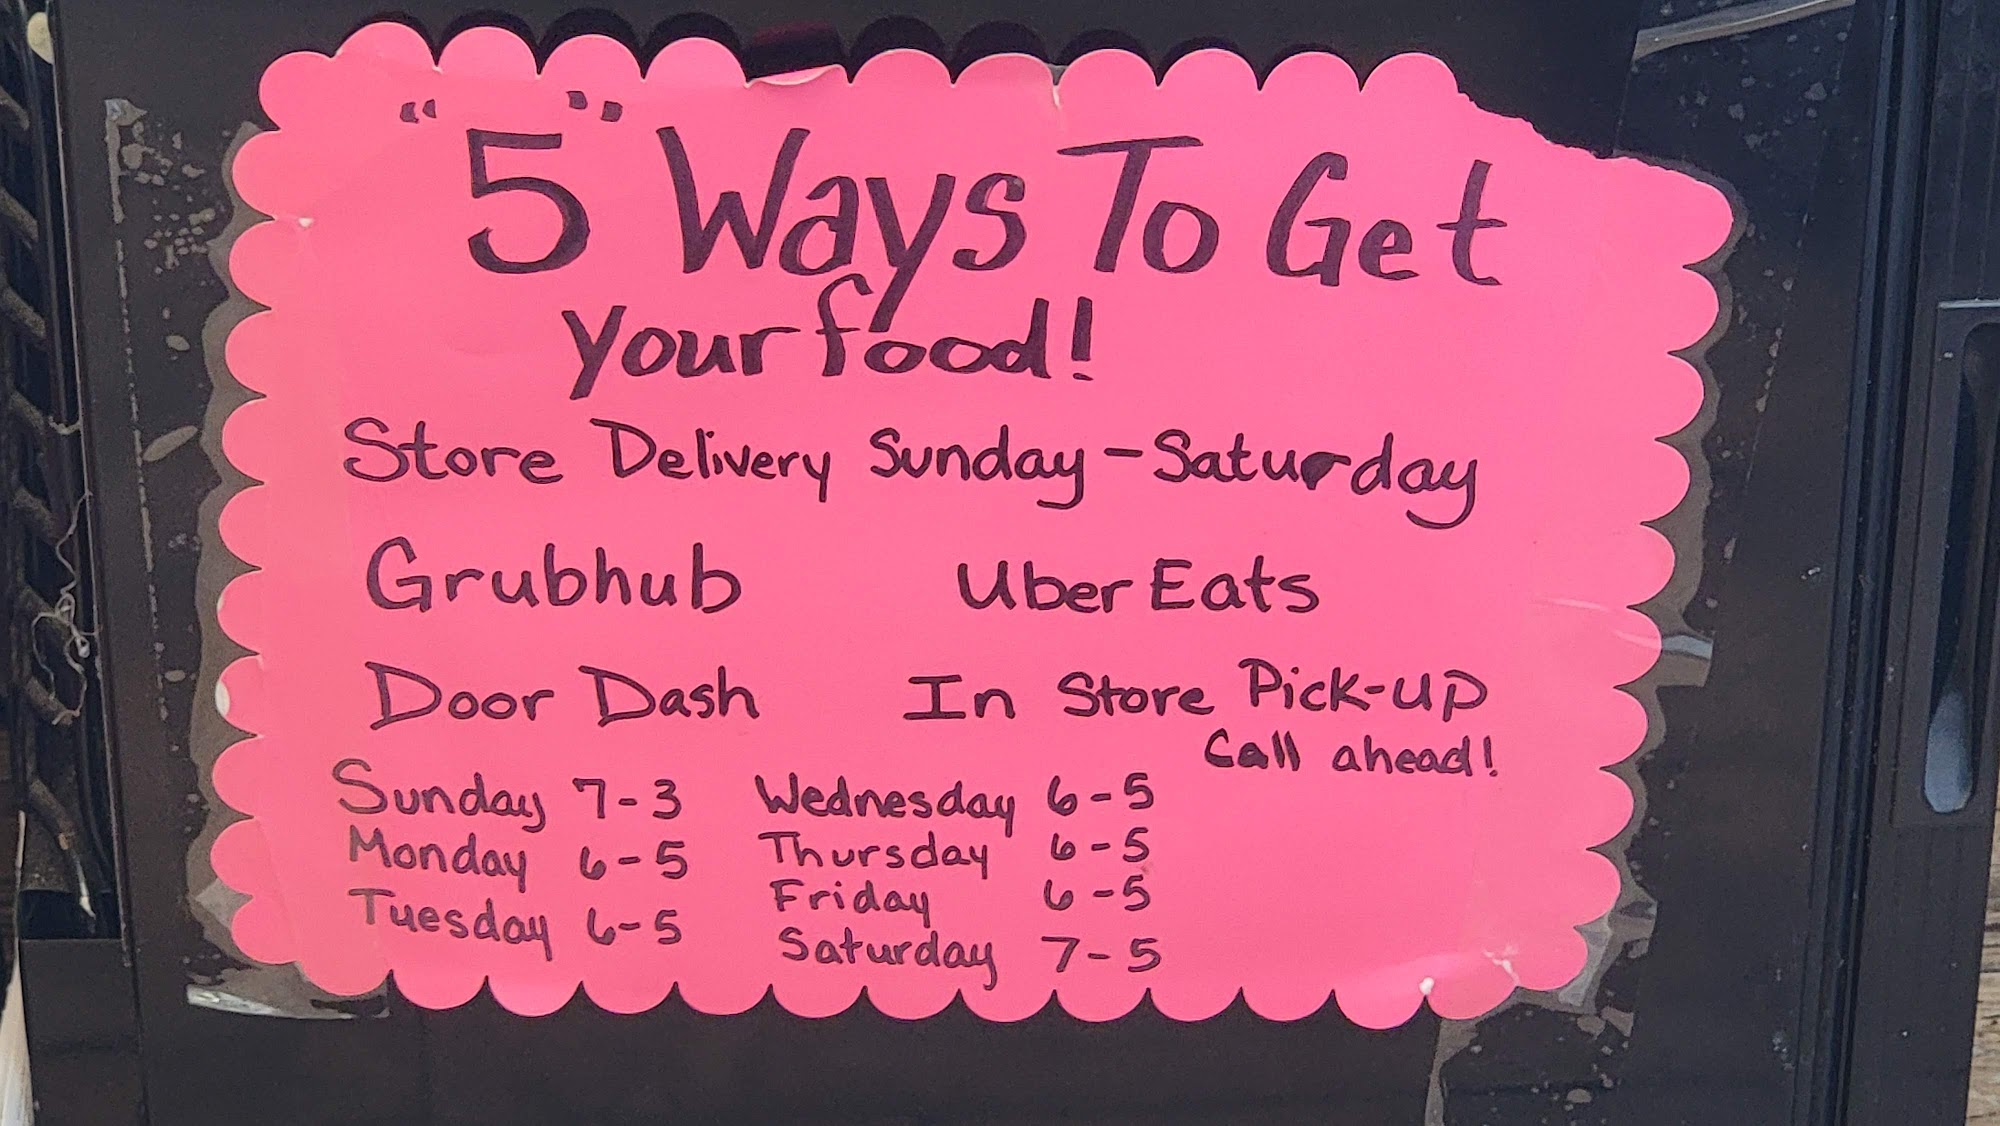 "5" Ways To Get
your food!
Store Delivery Sunday - Saturday
Grubhub Uber Eats
Door Dash In Store Pick-up
Call ahead!
Sunday 7-3 Wednesday 6-5
Monday 6-5 Thursday 6-5
Tuesday 6-5 Friday 6-5
Saturday 7-5